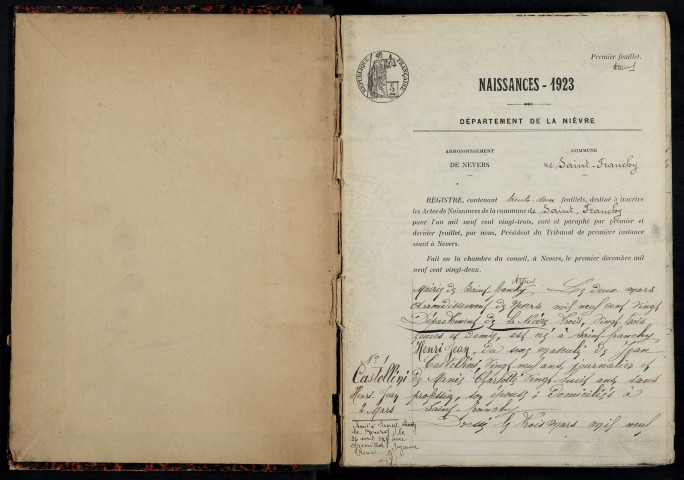 Premier feuillet.
RÉPUBLIQUE FRANÇAISE
2
NAISSANCES - 1923
DÉPARTEMENT DE LA NIÈVRE
ARRONDISSEMENT
DE NEVERS
COMMUNE
de Saint-Franchy
REGISTRE, contenant trente-deux feuillets, destiné à inscrire
les Actes de Naissances de la commune de Saint-Franchy
pour l'an mil neuf cent vingt-trois, coté et paraphé par premier et
dernier feuillet, par nous, Président du Tribunal de première instance
séant à Nevers.
Fait en la chambre du conseil, à Nevers, le premier décembre mil
neuf cent vingt-deux.
Mairie de Saint-Franchy
Arrondissement de Nevers
Département de la Nièvre
Le deux mars
mil neuf cent vingt
trois, vingt trois
heures et demie, est né à Saint-franchy
Henri Jean, du sexe masculin, de Jean
Castellini, vingt neuf ans, journalier et
de Marie Charlotte vingt huit ans sans
profession, son épouse; domiciliés à
Saint-franchy
Dressé le trois mars mil neuf
N° 1
Castellini
Henri-Jean
2 Mars